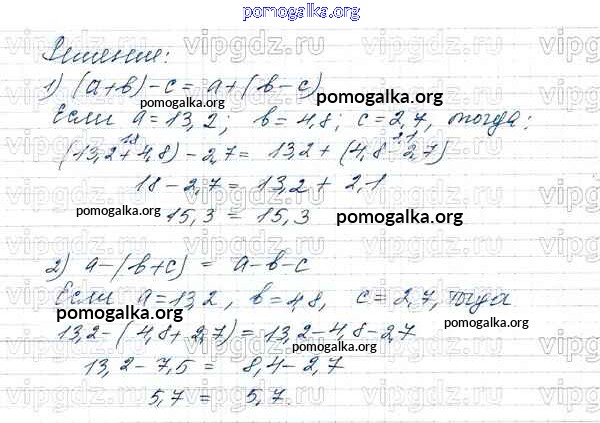 pomogalka.org
vipgdz.ru vipgdz.ru
Решение:
1) (а+в)-с = а+(в-с)
pomogalka.org pomogalka.org
Если а=13,2; в=4,8; с=2,7, тогда:
18 2,1
(13,2+4,8)-2,7 = 13,2+(4,8-2,7)
18-2,7 = 13,2+2,1
pomogalka.org
15,3 = 15,3
pomogalka.org
2) а-(в+с) = а-в-с
Если а=13,2, в=4,8, с=2,7, тогда
pomogalka.org
13,2-(4,8+2,7) = 13,2-4,8-2,7
pomogalka.org
pomogalka.org
13,2-7,5 = 8,4-2,7
5,7 = 5,7.